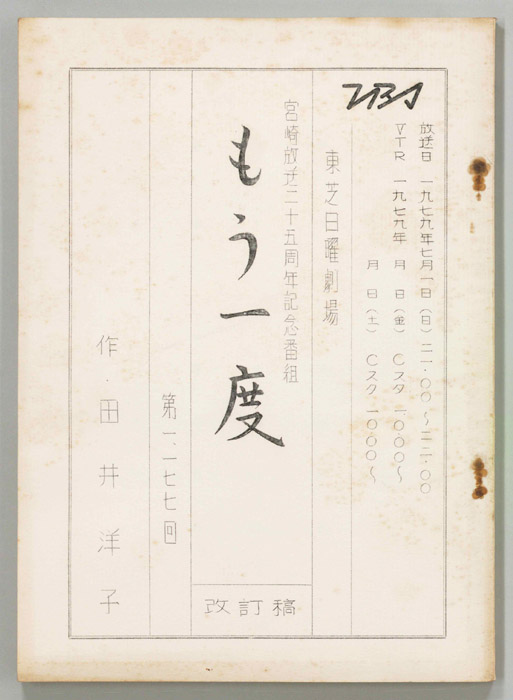 TBS
放送日 一九七九年七月一日(日)二一・〇〇〜二二・〇〇
VTR 一九七九年 月 日(金)Cスタ 一〇・〇〇〜
月 日(土)Cスタ 一〇・〇〇〜
東芝日曜劇場
宮崎放送二十五周年記念番組
もう一度
改訂稿
第一、一七七回
作・田井洋子